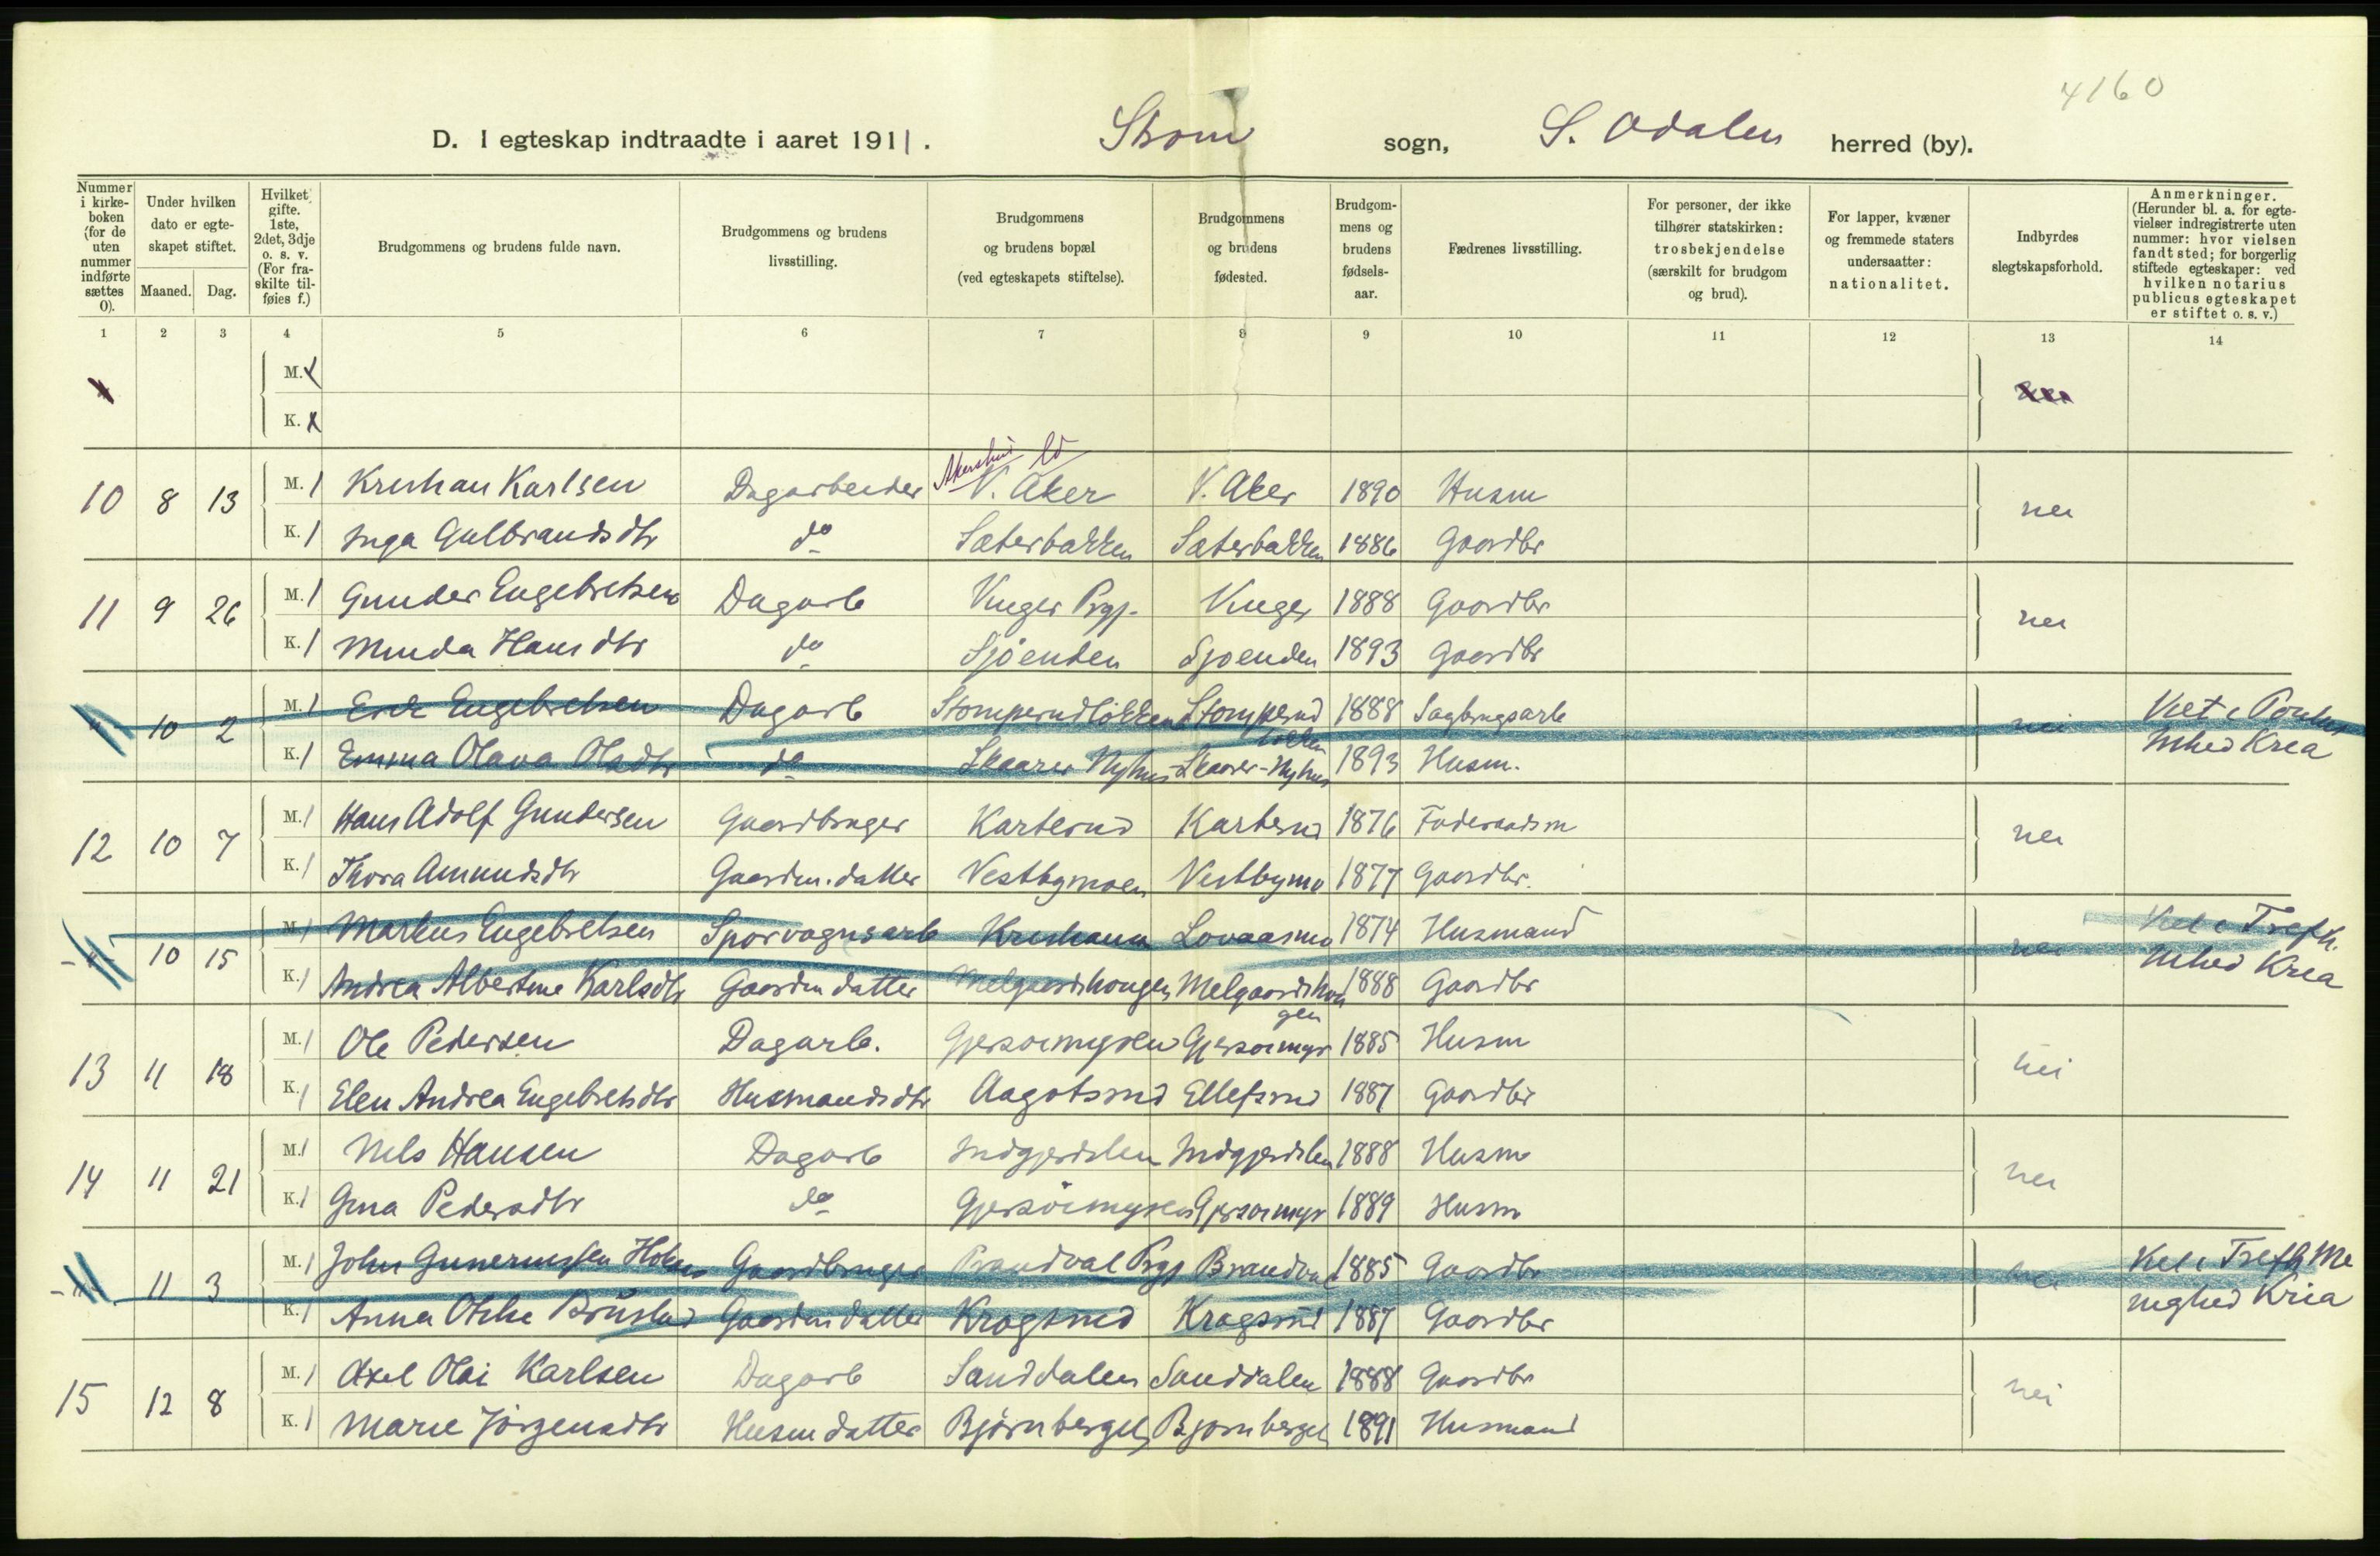 4160
D. I egteskap indtraadte i aaret 1911. Strom sogn, S. Odalen herred (by).
Nummer i kirke-boken (for de uten nummer indførte sættes 0).
Under hvilken dato er egte-skapet stiftet.
Maaned. Dag.
Hvilket gifte. 1ste, 2det, 3dje o. s. v. (For fra-skilte til-føies f.)
Brudgommens og brudens fulde navn.
Brudgommens og brudens livsstilling.
Brudgommens og brudens bopæl (ved egteskapets stiftelse).
Brudgommens og brudens fødested.
Brudgom-mens og brudens fødsels-aar.
Fædrenes livsstilling.
For personer, der ikke tilhører statskirken: trosbekjendelse (særskilt for brudgom og brud).
For lapper, kvæner og fremmede staters undersaatter: nationalitet.
Indbyrdes slegtskapsforhold.
Anmerkninger. (Herunder bl. a. for egte-vielser indregistrerte uten nummer: hvor vielsen fandt sted; for borgerlig stiftede egteskaper: ved hvilken notarius publicus egteskapet er stiftet o. s. v.)
1 2 3 4 5 6 7 8 9 10 11 12 13 14
M.
K.
Akershus
10 8 13 M. 1 Kristian Karlsen Dagarbeider V. Aker V. Aker 1890 Husm nei
K. 1 Inga Gulbrandsdtr do Sæterbakken Sæterbakken 1886 Gaardbr
11 9 26 M. 1 Gunder Engebretsen Dagarb Vinger Prgj. Vinger 1888 Gaardbr nei
K. 1 Minda Hansdtr do Sjøenden Sjøenden 1893 Gaardbr
" 10 2 M. 1 Erik Engebretsen Dagarb Stomperudløkken Stomperud 1888 Sagbrugsarb nei Viet i
løkken
K. 1 Emma Olava Olsdtr do Skaarer Nyhus Skaarer-Nyhus 1893 Husm. Krea
12 10 7 M. 1 Hans Adolf Gundersen Gaardbruger Karterud Karterud 1876 Føderaadsm nei
K. 1 Thora Amundsdtr Gaardm.datter Vestbymoen Vestbymo 1877 Gaardbr.
" 10 15 M. 1 Markus Engebretsen Sporvognsarb Kristiania Lovaasmo 1874 Husmand nei Viet i Trefh.
K. 1 Andrea Albertine Karlsdtr Gaardm datter Melgaardshougen Melgaardshou 1888 Gaardbr Krea
gen
13 11 18 M. 1 Ole Pedersen Dagarb. Gjersøimyren Gjersøimyr 1885 Husm nei
K. 1 Elen Andrea Engebretsdtr Husmandsdtr Aagotsrud Ellefsrud 1887 Gaardbr
14 11 21 M. 1 Nils Hansen Dagarb Indgjerdslien Indgjerdslien 1888 Husm nei
K. 1 Gina Pedersdtr do Gjersøimyren Gjersøimyr 1889 Husm
" 11 3 M. 1 John Gunerius­sen Holmen Gaardbruger Brandval Prgj Brandval 1885 Gaardbr nei Viet i Trefh Me
K. 1 Anna Otilie Gaardm datter Krogsrud Krogsrud 1887 Gaardbr nighed Kria
15 12 8 M. 1 Axel Olai Karlsen Dagarb Sanddalen Sanddalen 1888 Gaardbr nei
K. 1 Marie Jørgensdtr Husm datter Bjørnberget Bjørnberget 1891 Husmand